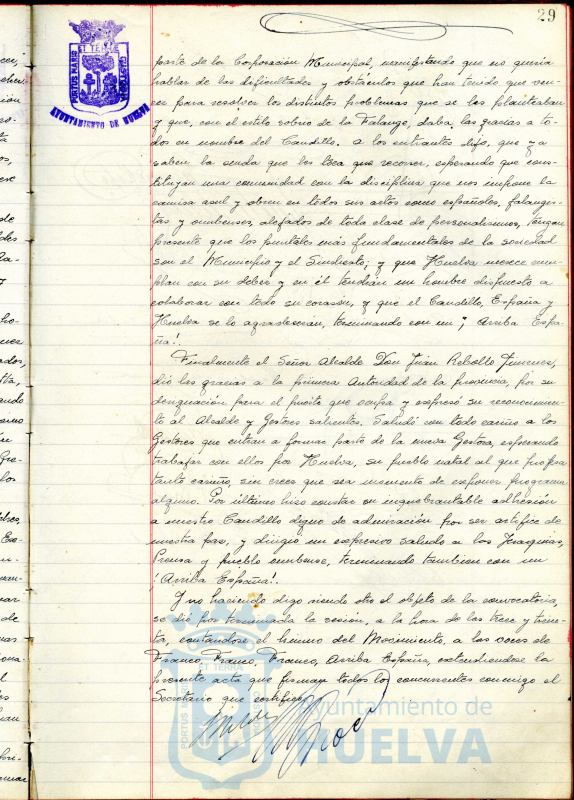 29
PORTUS MARIS
ET TERRE
CUSTODIA
AYUNTAMIENTO DE HUELVA
parte de la Corporación Municipal, manifestando que no queria
hablar de las dificultades y obstáculos que han tenido que ven-
cer para resolver los distintos problemas que se les planteaban
y que, con el estilo sobrio de la Falange, daba las gracias a to-
dos en nombre del Caudillo. A los entrantes dijo, que ya
saben la senda que les toca que recorrer, esperando que cons-
tituyan una comunidad con la disciplina que nos impone la
camisa azul y obren en todos sus actos como españoles, falangis-
tas y onubenses, alejados de toda clase de personalismos, tengan
presente que los puntales más fundamentales de la sociedad
son el Municipio y el Sindicato; y que Huelva merece cum-
plan con su deber y en él tendrian un hombre dispuesto a
colaborar con todo su corazón, y que el Caudillo, España y
Huelva se lo agradecerán, terminando con un ¡ Arriba Espa-
ña!.
Finalmente el Señor Alcalde Don Juan Rebollo Jimenez,
dió las gracias a la primera Autoridad de la provincia, por su
designación para el puesto que ocupa y expresó su reconocimien-
to al Alcalde y Gestores salientes. Saludó con todo cariño a los
Gestores que entran a formar parte de la nueva Gestora, esperando
trabajar con ellos por Huelva, su pueblo natal al que profesa
tanto cariño, sin creer que sea momento de exponer programa
alguno. Por último hizo constar su inquebrantable adhesión
a nuestro Caudillo digno de admiración por ser artifice de
nuestra paz, y dirigió un expresivo saludo a las Jerarquias,
Prensa y pueblo onubense, terminando tambien con un
¡Arriba España!.
Y no haciendo digo siendo otro el objeto de la convocatoria,
se dió por terminada la sesión, a la hora de las trece y trein-
ta, cantandose el himno del Movimiento, a las voces de
Franco, Franco, Franco, Arriba España, extendiendose la
presente acta que firman todos los concurrentes conmigo el
Secretario que certifico.
Ayuntamiento de
HUELVA